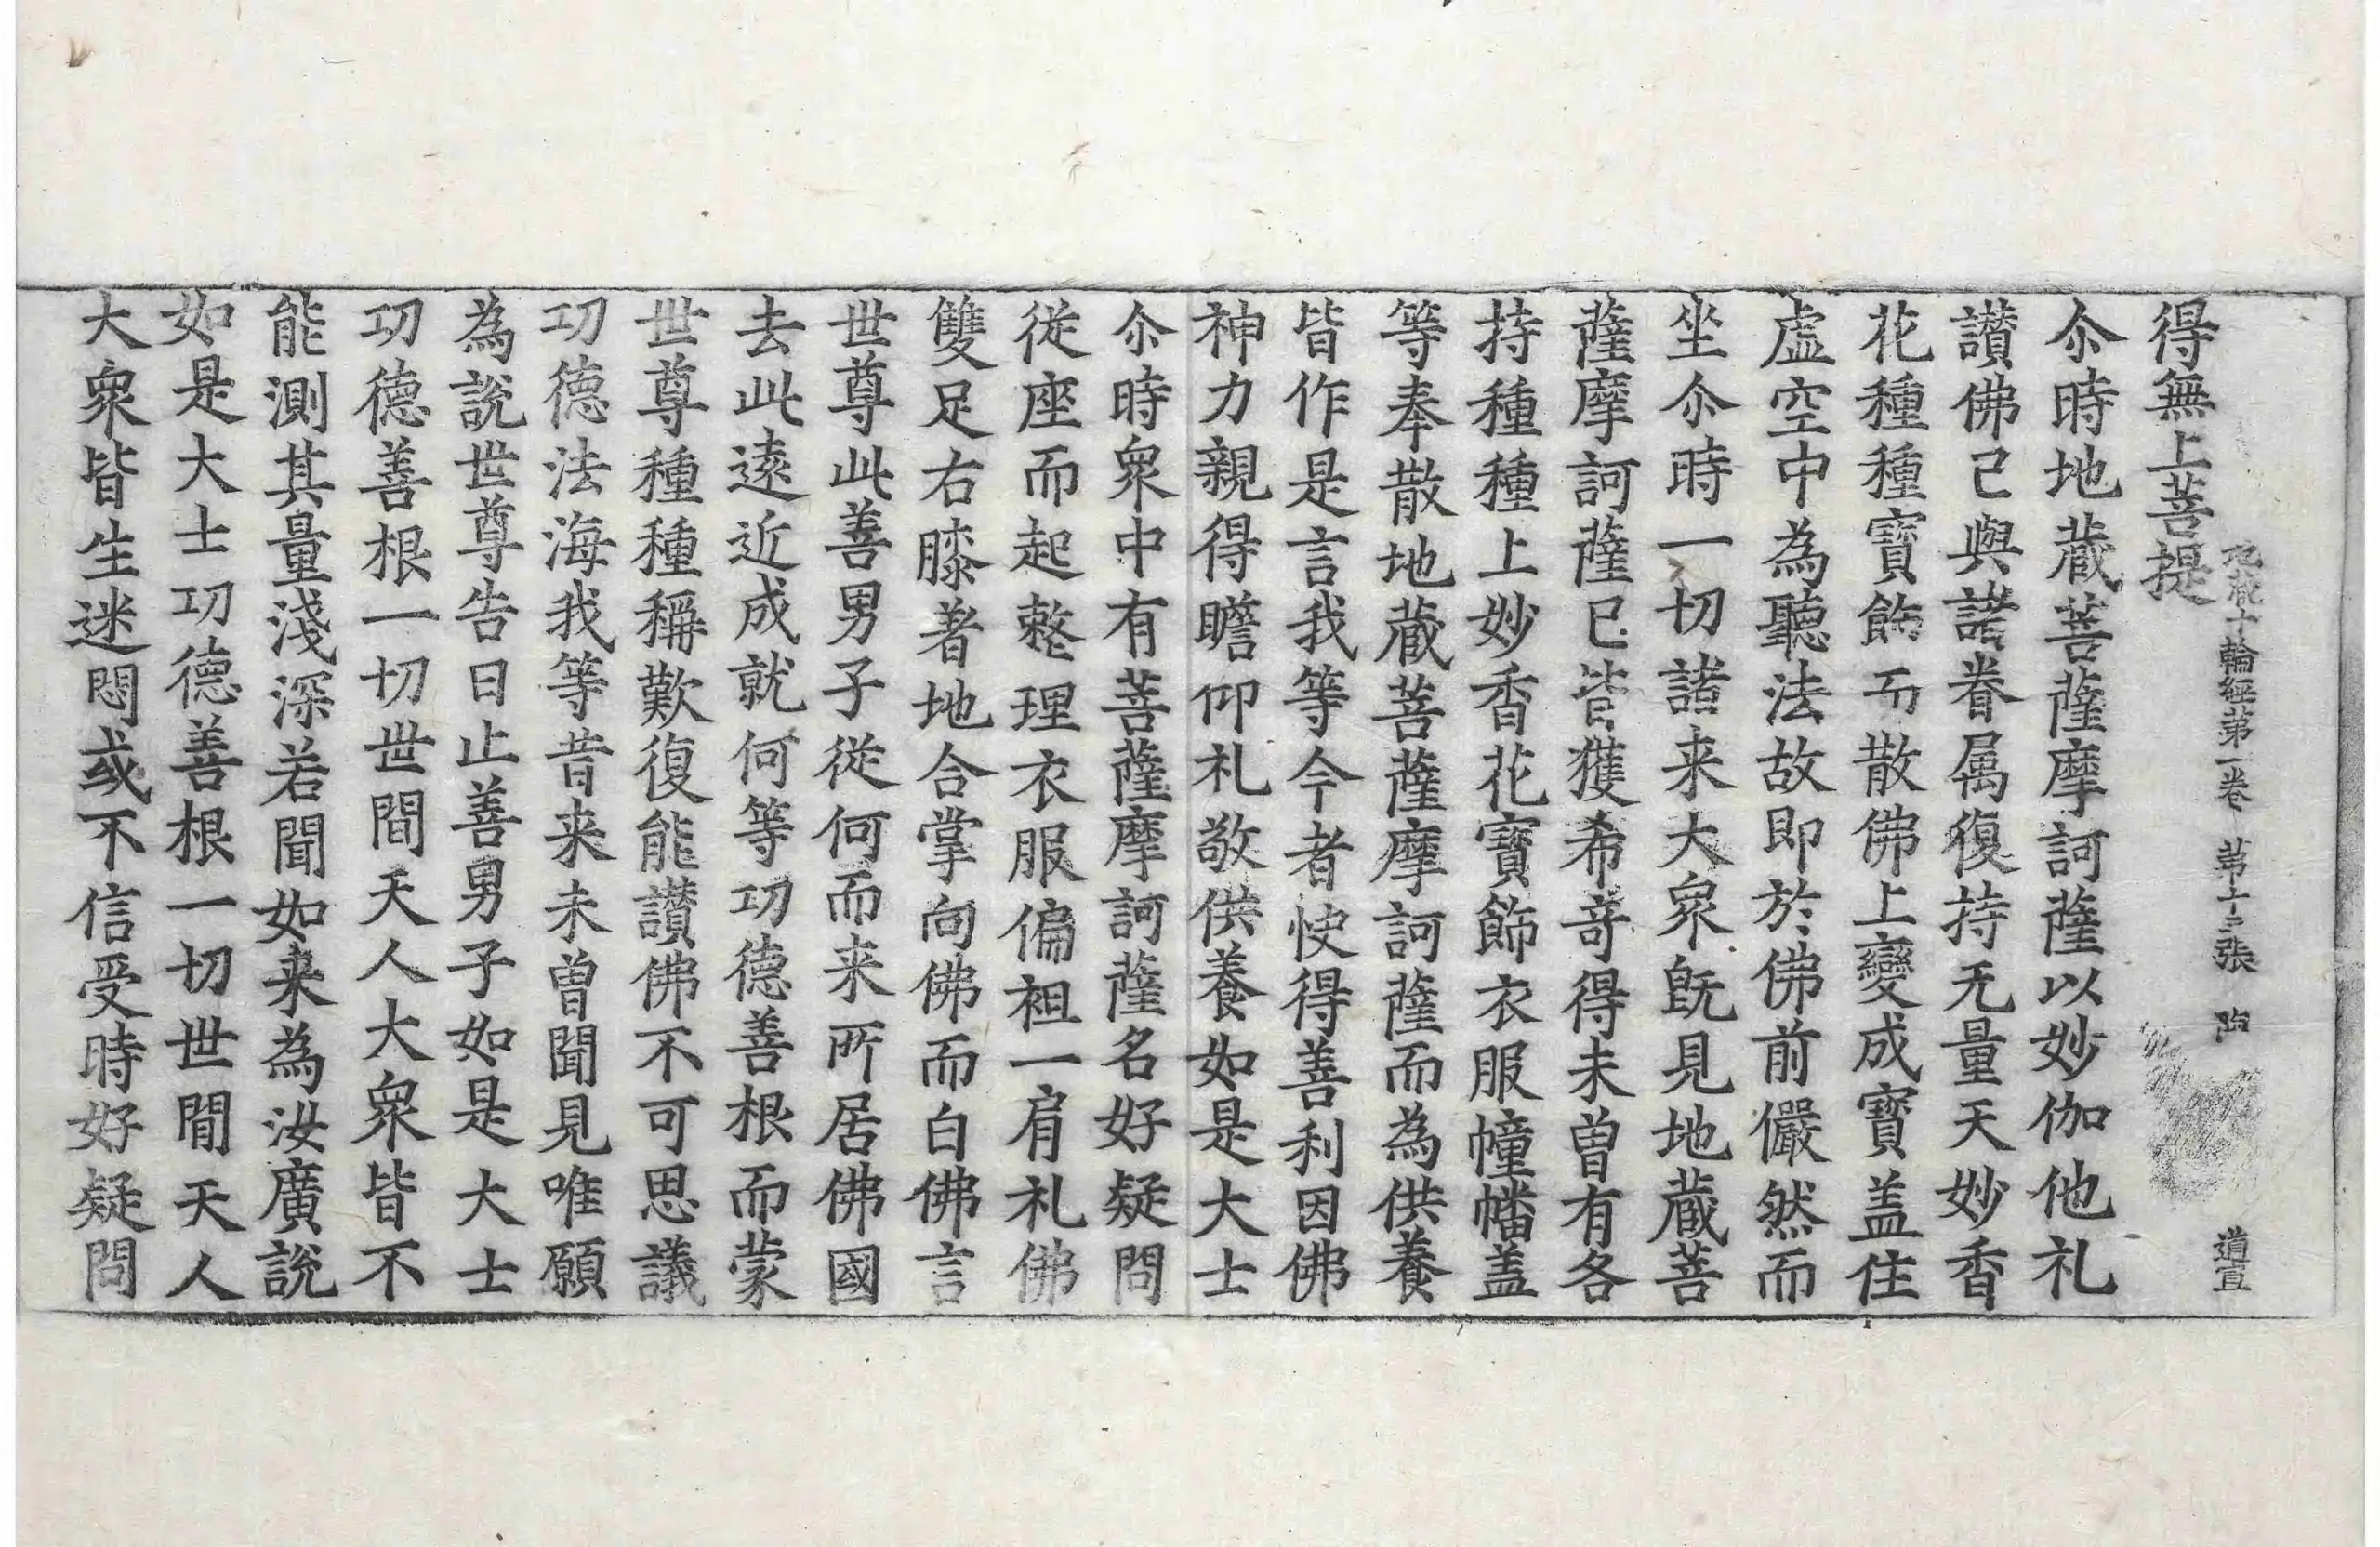 地藏十輪經第一卷 第十三張 陶 道宣
得無上菩提
尒時地蔵菩薩摩訶薩以妙伽他礼
讃佛已與諸眷属復持无量天妙香
花種種寶飾而散佛上變成寶盖住
虚空中為聽法故即於佛前儼然而
坐尒時一切諸来大衆既見地蔵菩
薩摩訶薩已皆獲希奇得未曽有各
持種種上妙香花寶飾衣服幢幡盖
等奉散地蔵菩薩摩訶薩而為供養
皆作是言我等今者快得善利因佛
神力親得瞻仰礼敬供養如是大士
尒時衆中有菩薩摩訶薩名好疑問
従座而起整理衣服偏袒一肩礼佛
雙足右膝著地合掌向佛而白佛言
世尊此善男子従何而来所居佛國
去此遠近成就何等功德善根而蒙
世尊種種稱歎復能讃佛不可思議
功德法海我等昔来未曽聞見唯願
為説世尊告曰止善男子如是大士
功德善根一切世間天人大衆皆不
能測其量淺深若聞如来為汝廣説
如是大士功德善根一切世間天人
大衆皆生迷悶或不信受時好疑問